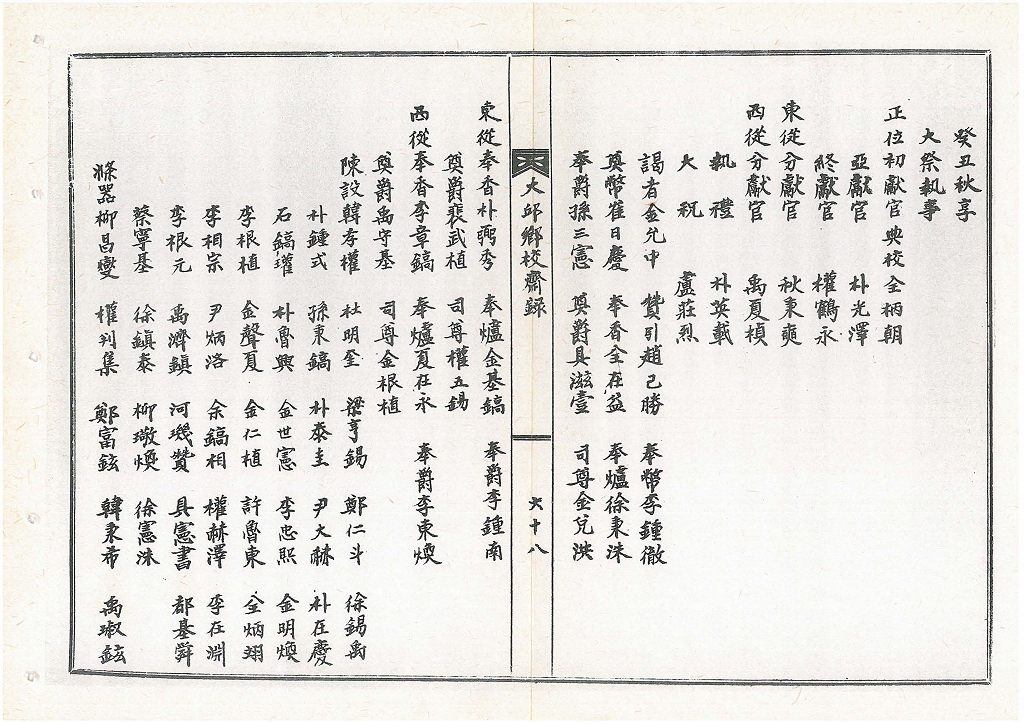 癸丑秋享
大祭執事
正位初獻官 典校 全柄朝
亞獻官 朴光澤
終獻官 權鶴永
東從分獻官 秋秉奭
西從分獻官 禹夏楨
執禮 朴英載
大祝 盧莊烈
謁者 金允中 贊引 趙己勝 奉幣 李鍾徹
奠幣 崔日慶 奉香 全在益 奉爐 徐秉洙
奉爵 孫三憲 奠爵 具滋壹 司尊 金兌洪
大邱鄕校齋錄
六十八
東從奉香 朴彝秀 奉爐 金基鎬 奉爵 李鍾南
奠爵 裵武植 司尊 權五錫
西從奉香 李章鎬 奉爐 夏在永 奉爵 李東煥
奠爵 禹守基 司尊 金根植
陳設 韓孝權 杜明奎 梁亨錫 鄭仁斗 徐錫禹
朴鍾式 孫秉鎬 朴泰圭 尹大赫 朴在慶
石鎬瓘 朴魯興 金世憲 李忠熙 金明煥
李根植 金聲夏 金仁植 許魯東 全炳翊
李相宗 尹炳洛 余鎬相 權赫澤 李在淵
李根元 禹濟鎭 河璣贊 具憲書 都基舜
蔡寧基 徐鎭泰 柳璥煥 徐憲洙
滌器 柳昌燮 權判集 鄭富鉉 韓秉希 禹淑鉉